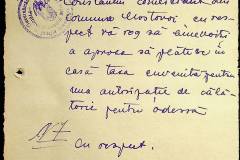 Constantin
comuna Mostovoi, cu res-
pect vă rog să binevoiți
a aproba să plătesc în
casă taxa cuvenită pentru
una autorizație de călă-
torie pentru Odessa
Cu respect.